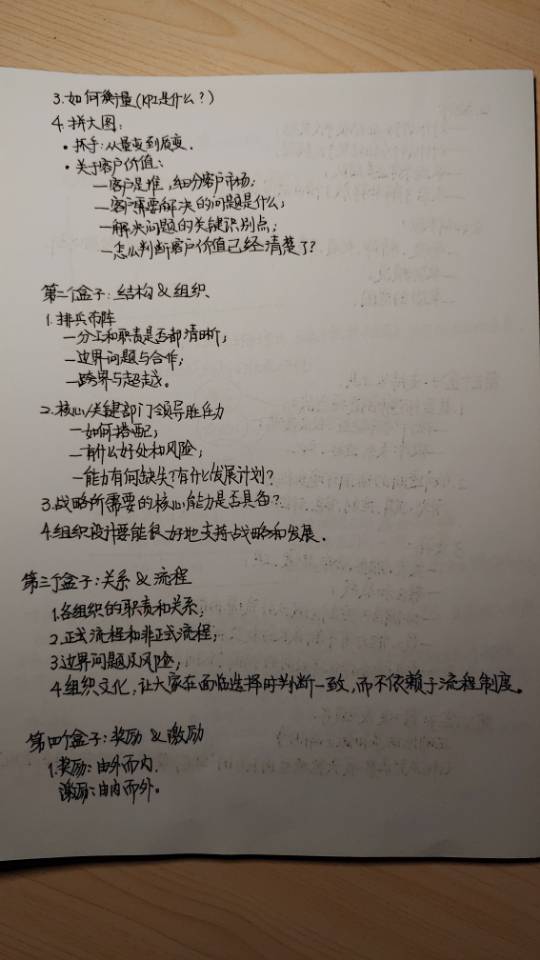 3.如何衡量(KPI是什么?)
4.拼大图:
·抓手:从量变到质变.
·关于客户价值:
—客户是谁,细分客户市场;
—客户需要解决的问题是什么;
—解决问题的关键识别点;
—怎么判断客户价值已经清楚了?
第二个盒子:结构&组织.
1.排兵布阵
—分工和职责是否都清晰;
—边界问题与合作;
—跨界与超越。
2.核心/关键部门领导胜任力
—如何搭配;
—有什么好处和风险;
—能力有何缺失?有什么发展计划?
3.战略所需要的核心能力是否具备?
4.组织设计要能很好地支持战略和发展.
第三个盒子:关系&流程
1.各组织的职责和关系;
2.正式流程和非正式流程;
3.边界问题及风险;
4.组织文化,让大家在面临选择时判断一致,而不依赖于流程制度。
第四个盒子:奖励&激励
1.奖励:由外而内.
激励:由内而外。